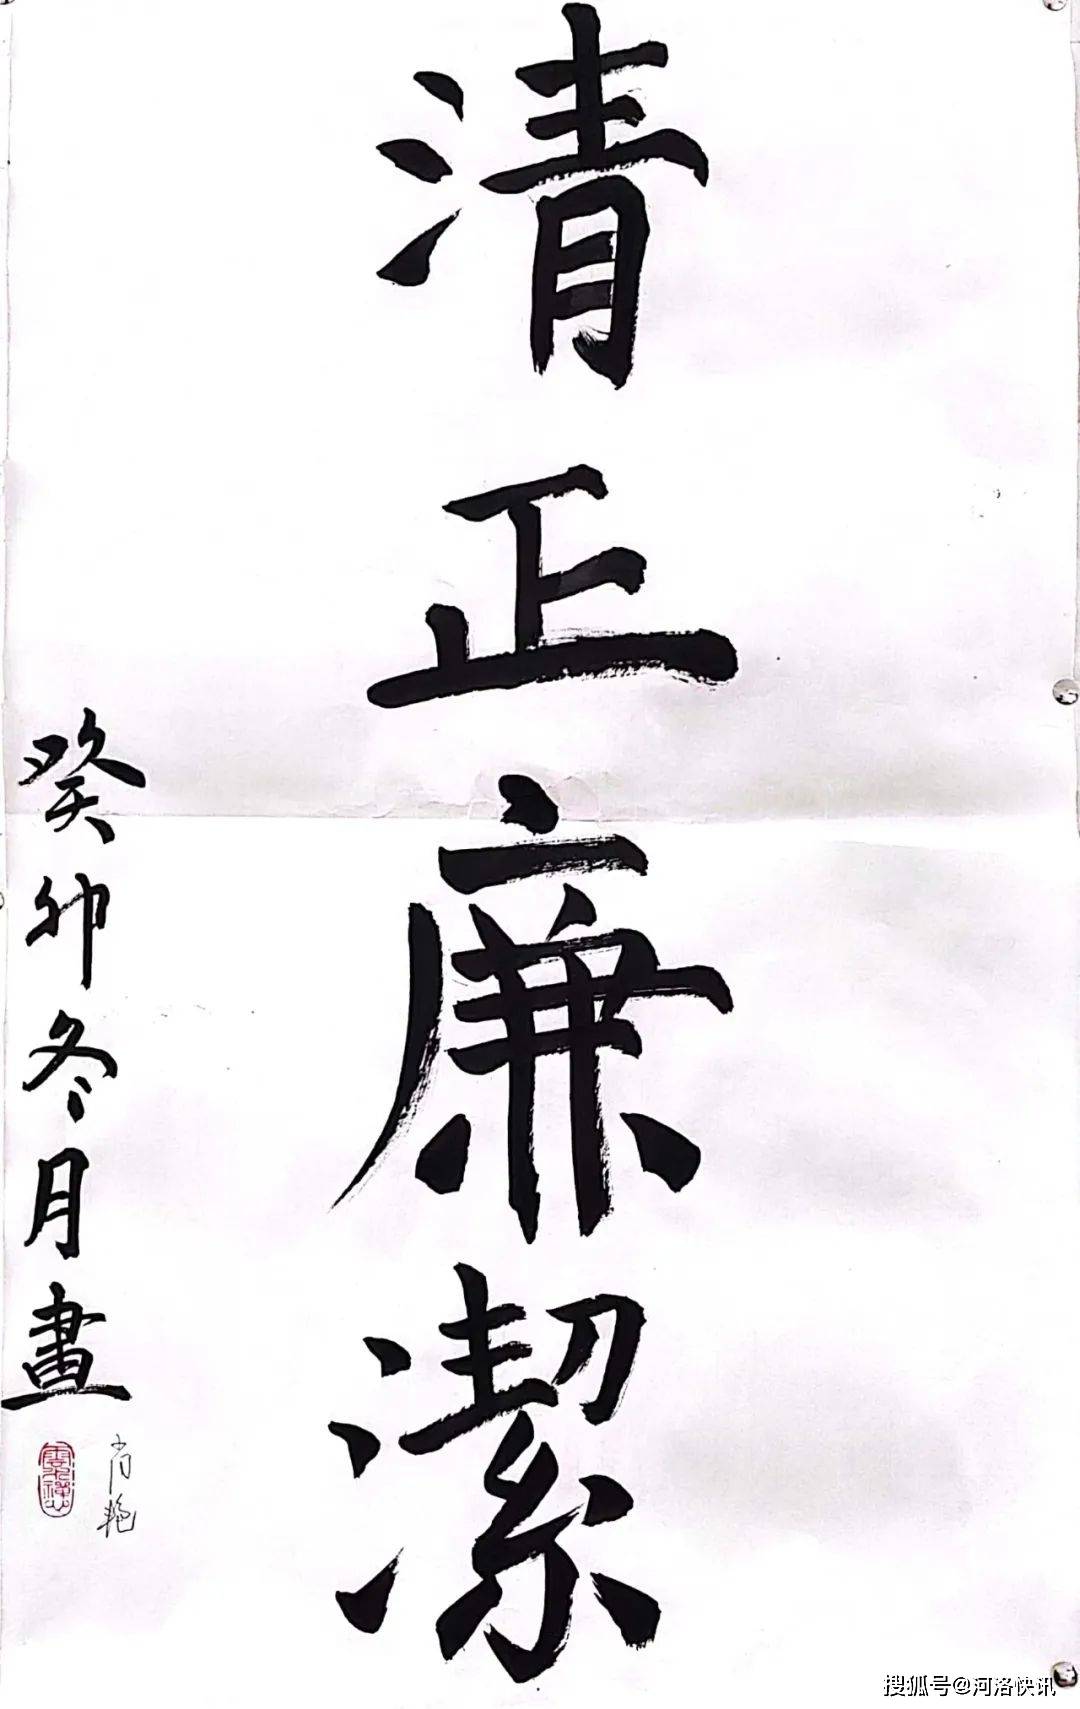 清正廉潔
癸卯冬月畫
肖艳
搜狐号@河洛快讯